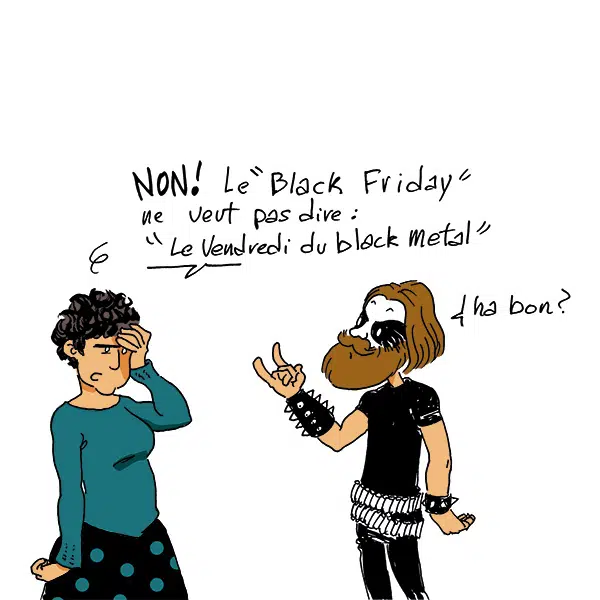 NON! Le "Black Friday"
ne veut pas dire :
"Le Vendredi du black metal"
ha bon?